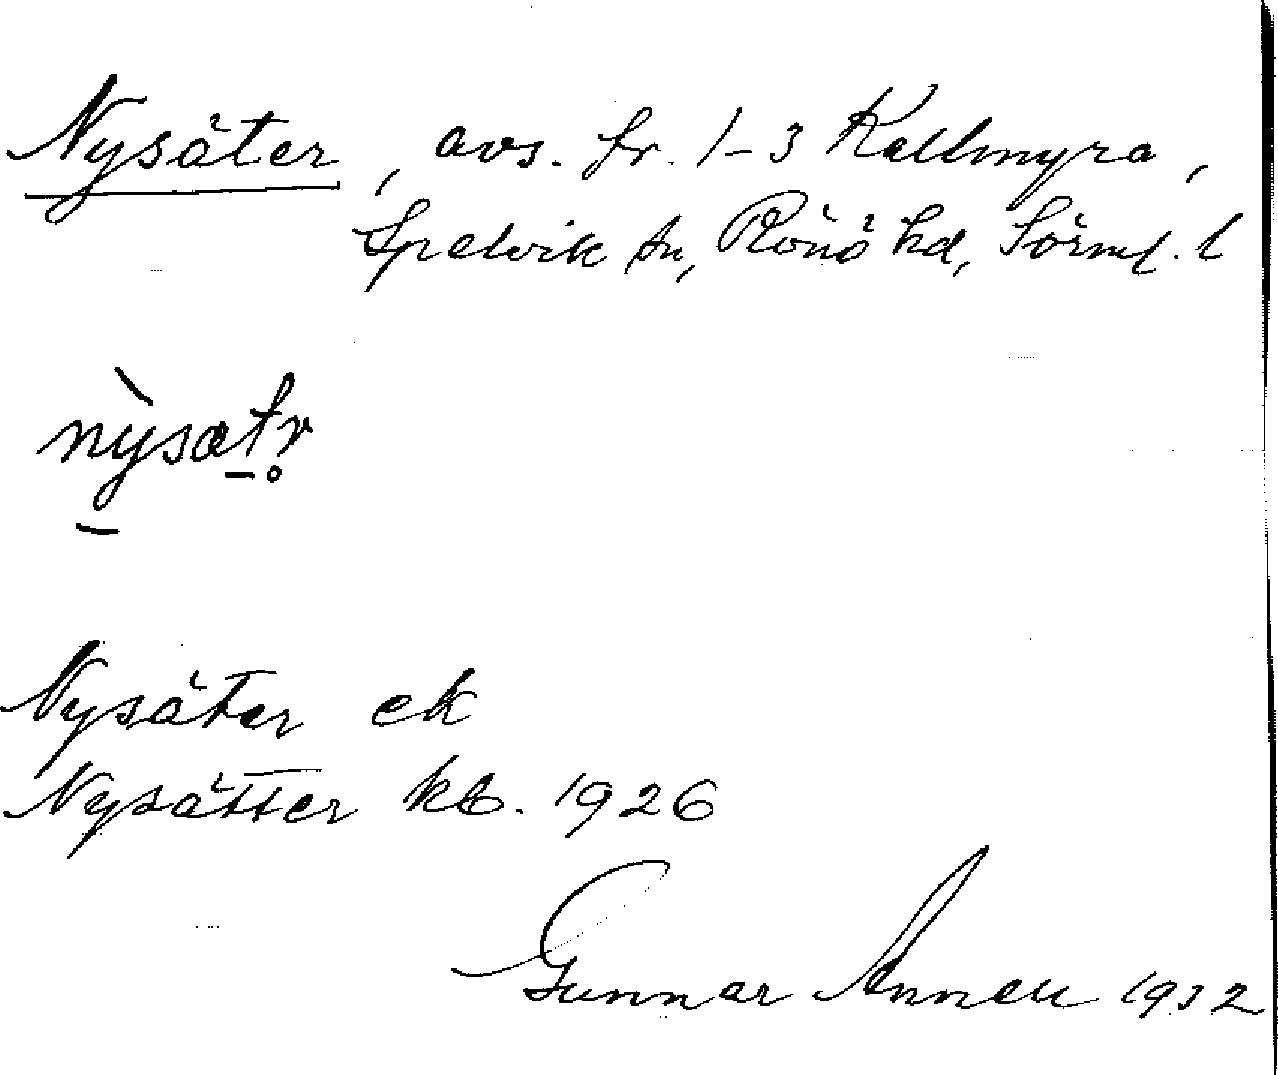 Nysäter, avs. fr. 1-3 Kallmyra,
Spelvik sn, Rönö hd, Sörml. l
nysætr̥
Nysäter ek
Nysätter kb. 1926
Gunnar Annell 1932